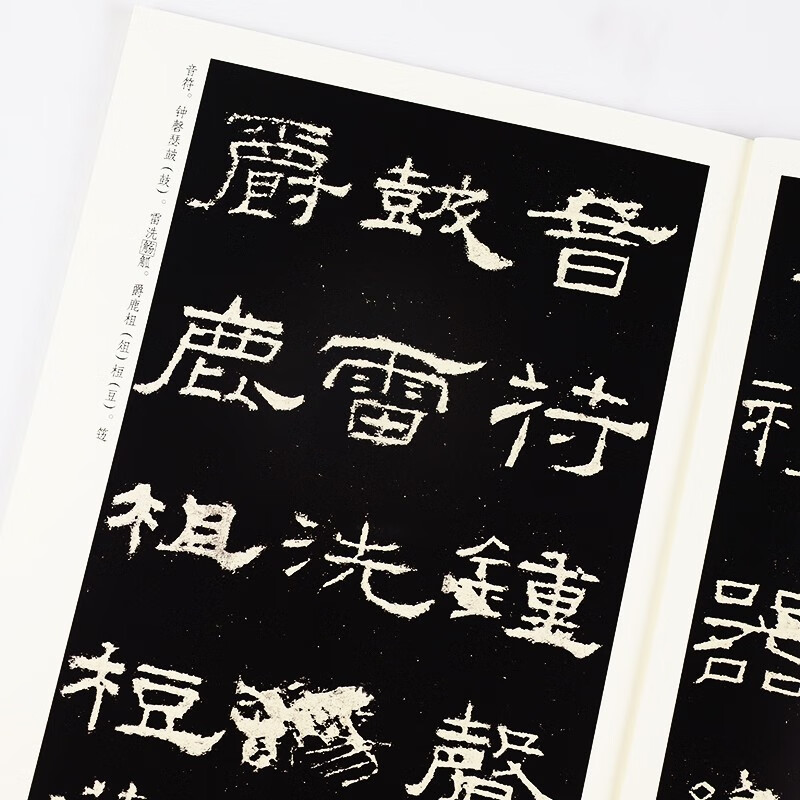 器
音符鍾磬
皷雷洗觴
爵鹿柤梪
音符。钟磬瑟皷（鼓）。雷洗觞觚。爵鹿柤（俎）梪（豆）。笾